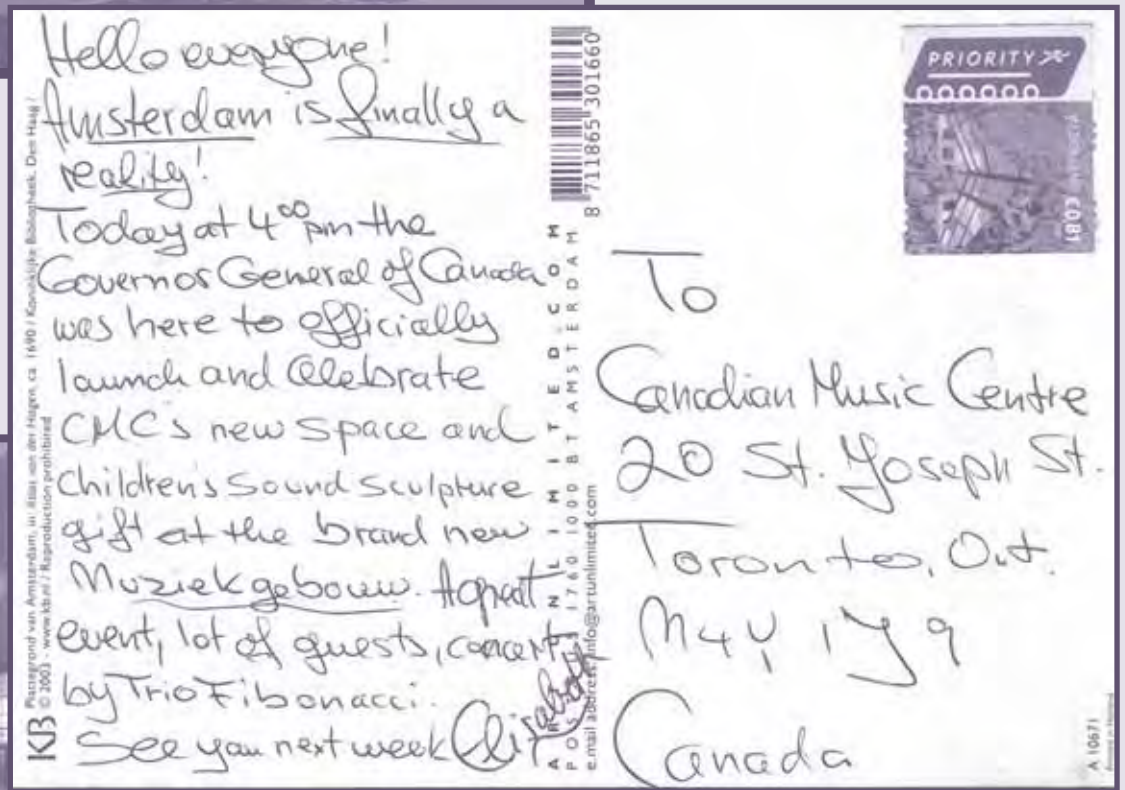 Hello everyone!
Amsterdam is finally a
reality!
Today at 4⁰⁰ pm the
Governor General of Canada
was here to officially
launch and Celebrate
CMC's new space and
Children's Sound Sculpture
gift at the brand new
Muziekgebouw. A great
event, lot of guests, concert
by Trio Fibonacci.
See you next week Elisabeth
KB
Plattegrond van Amsterdam, in: Atlas van der Hagen, ca. 1690 / Koninklijke Bibliotheek, Den Haag /
© 2003 - www.kb.nl / Reproduction prohibited
8 711865 301660
ART UNLIMITED.COM
1000 BT AMSTERDAM
e.mail address: info@artunlimited.com
PRIORITY
€0.81
To
Canadian Music Centre
20 St. Joseph St.
Toronto, Ont.
M4Y 1J9
Canada
A 10671
Printed in Holland